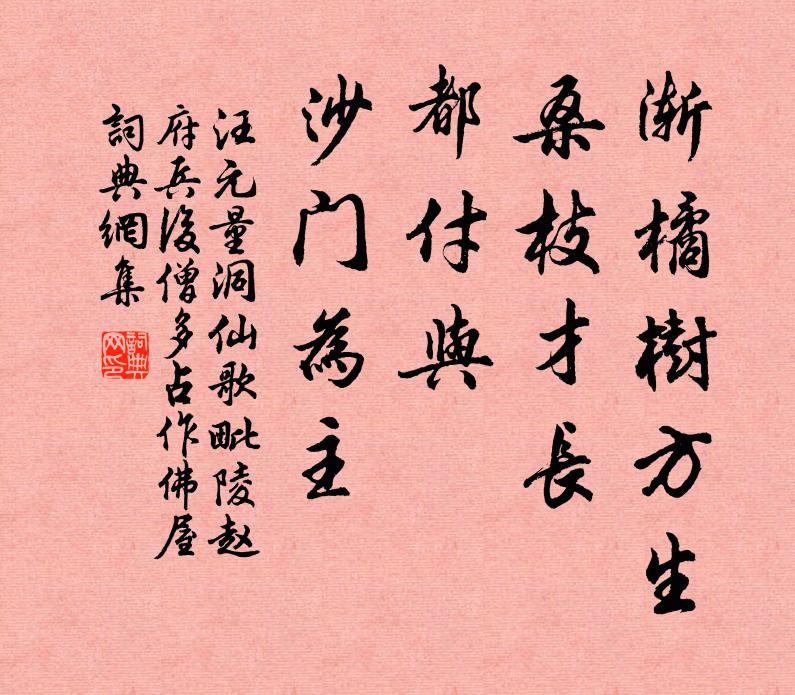 渐橘樹方生
桑枝才長
都付與
沙门為主
汪元量洞仙歌毗陵赵
府兵後僧多占作佛屋
詞典網集
詞典网印